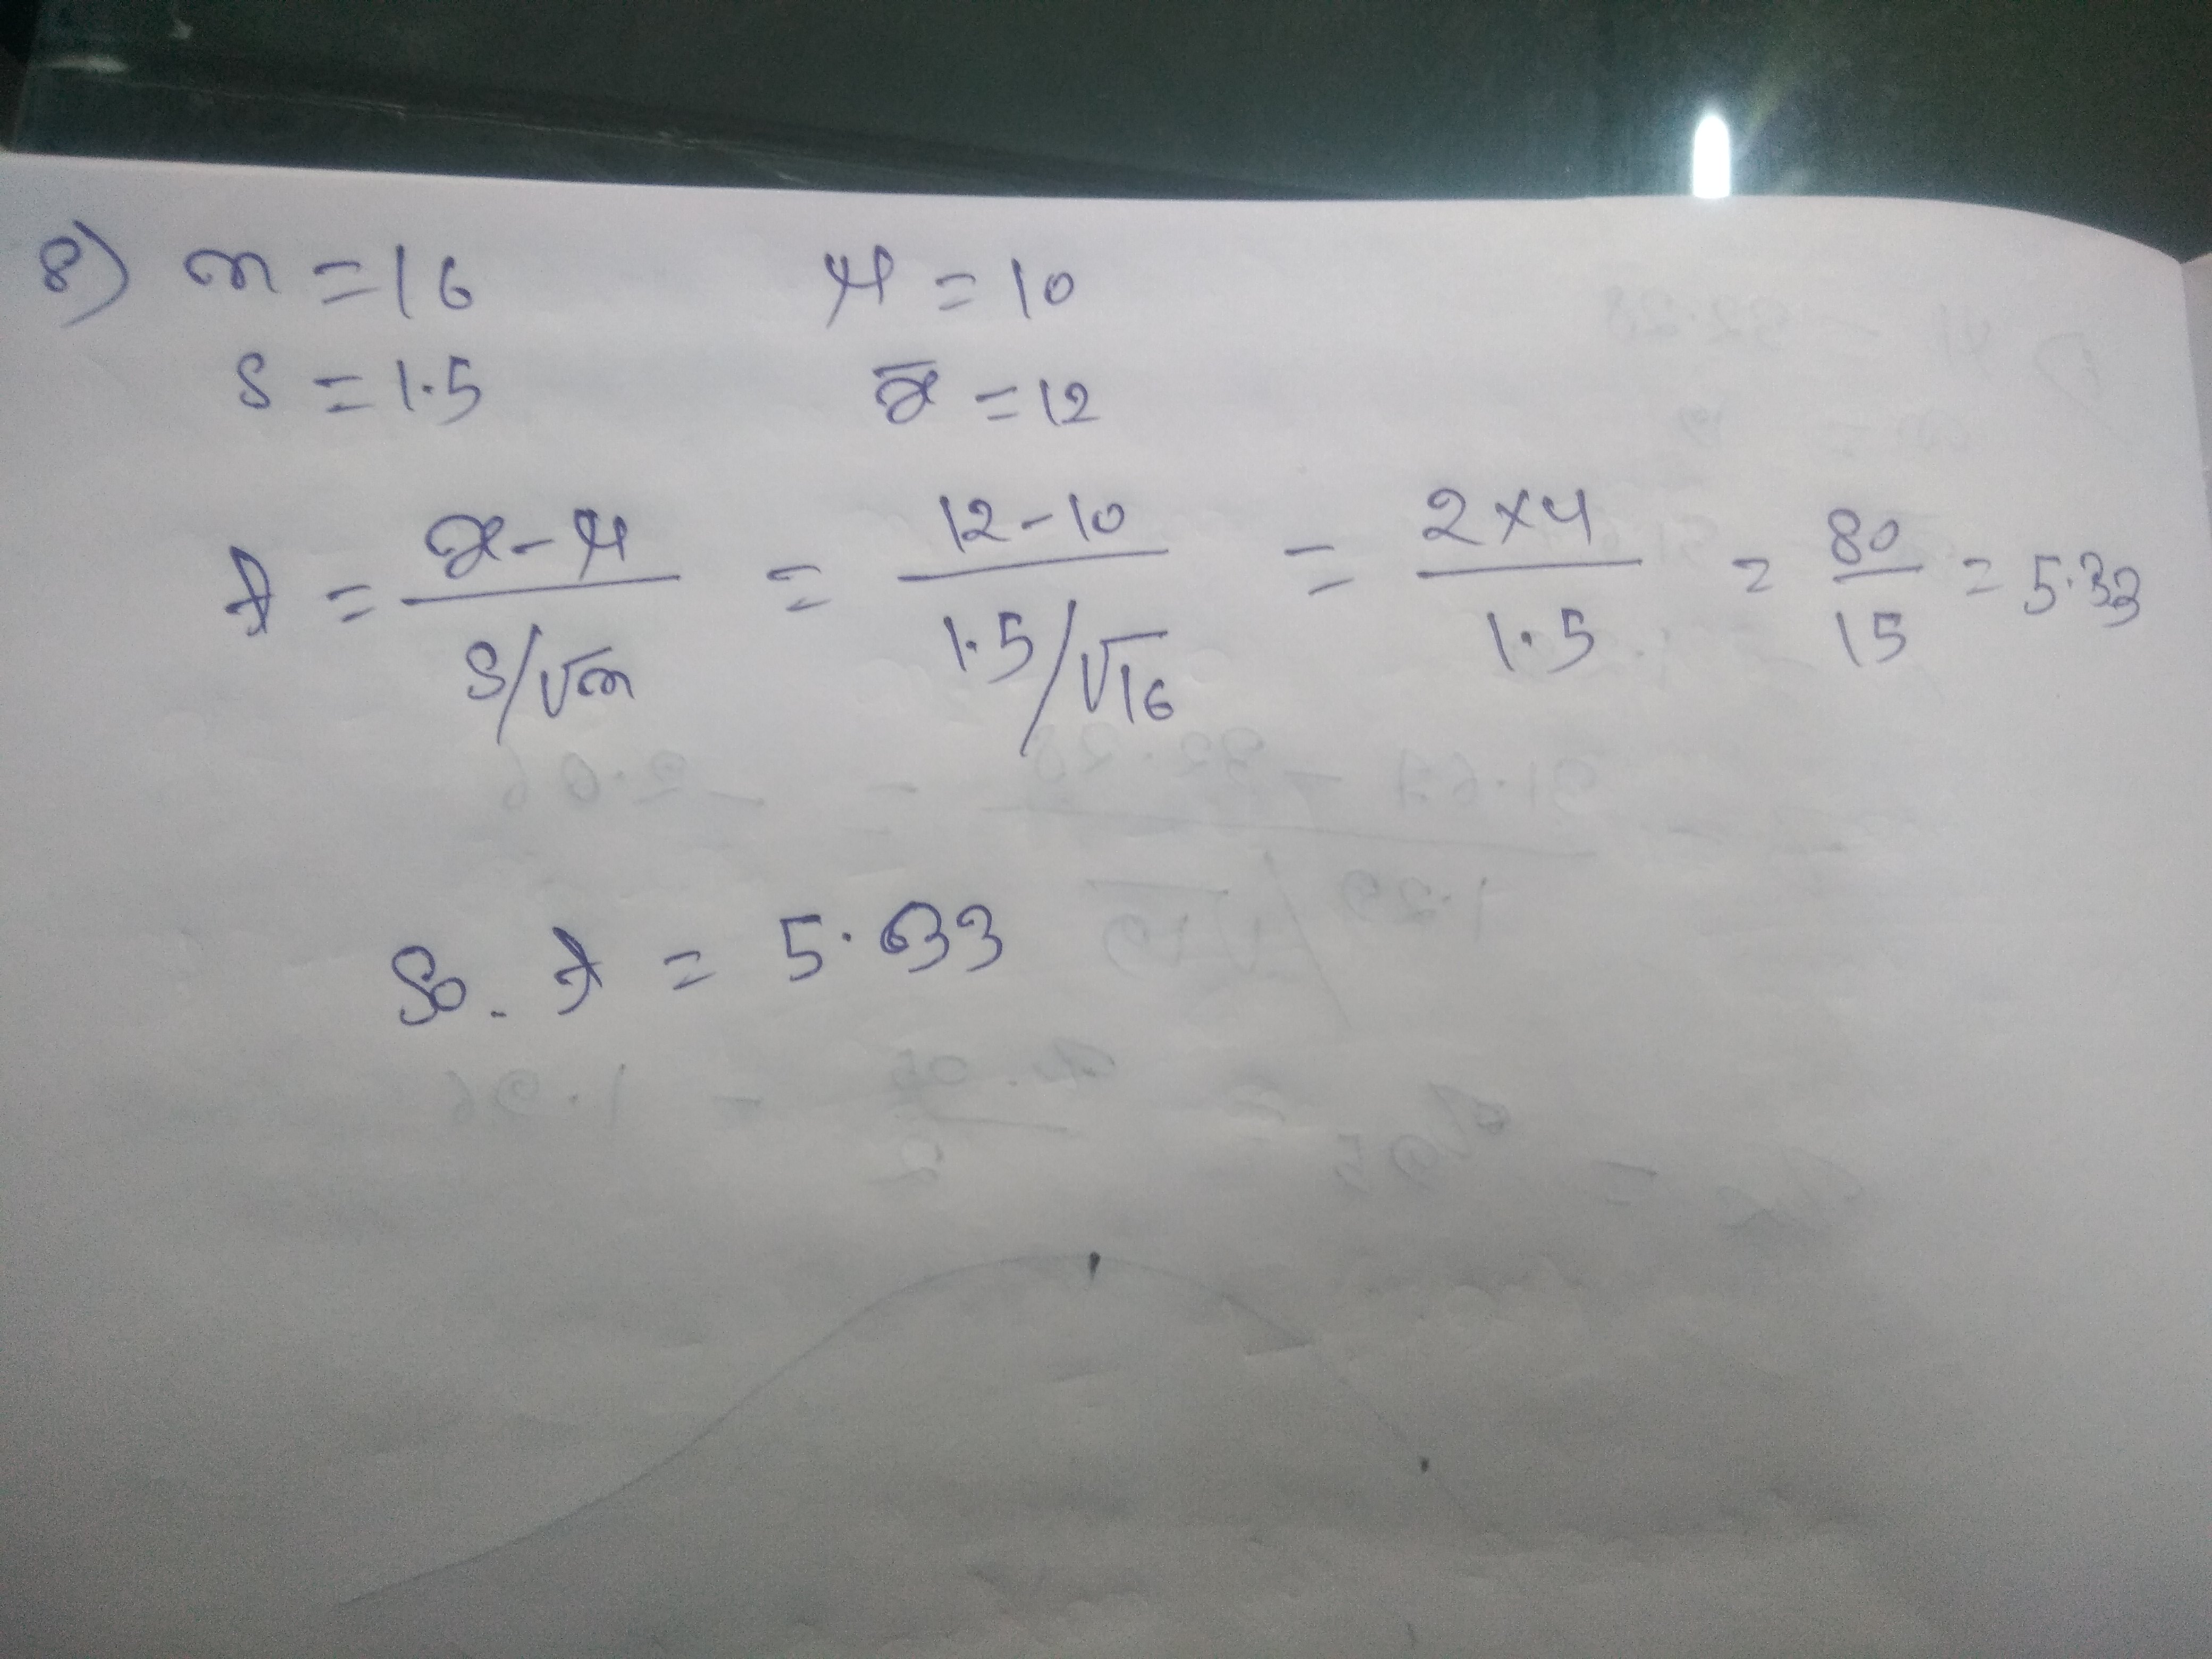 8) n = 16 μ = 10
S = 1.5 x̄ = 12
t = x - μ / S/√n = 12 - 10 / 1.5/√16 = 2 × 4 / 1.5 = 80 / 15 = 5.33
So. t = 5.33